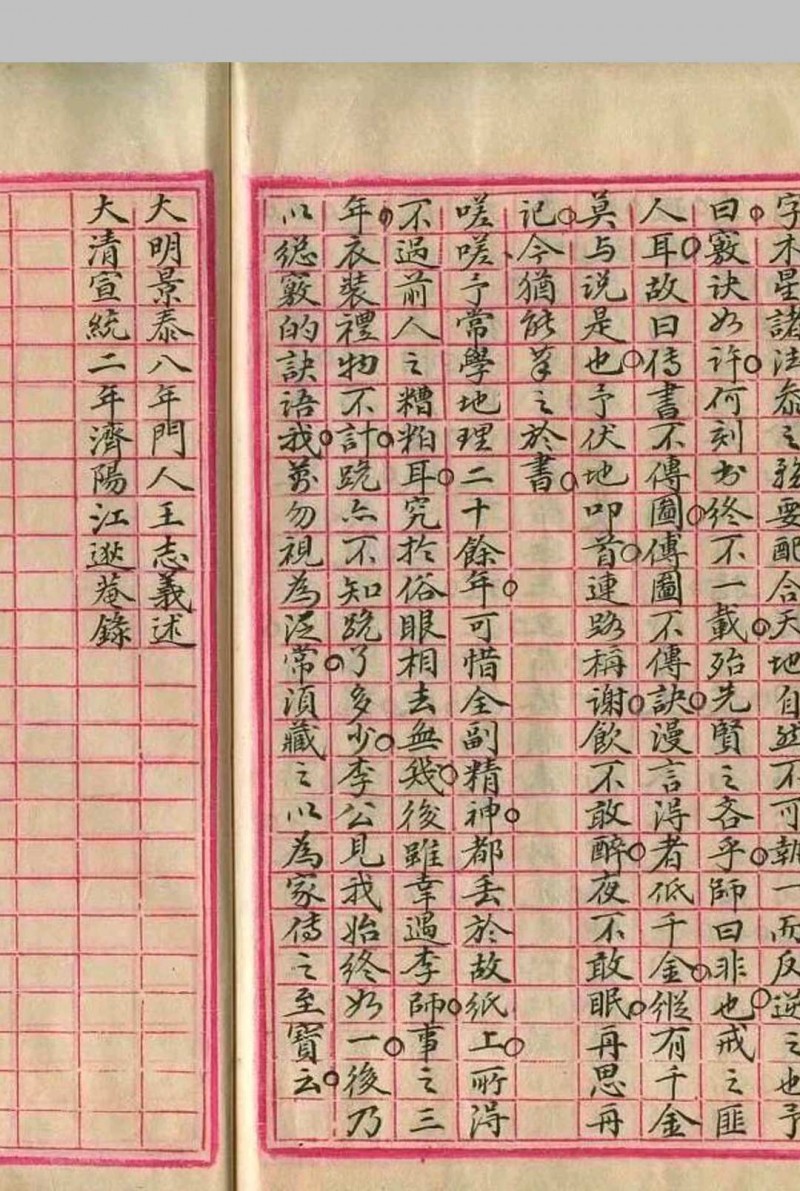 字木星諸法參之雖要配合天地自然不可執一而反逆之也予
曰竅訣如許何刻書終不一載殆先賢之吝乎師曰非也戒之匪
人耳故曰傳書不傳圖傳圖不傳訣漫言得者低千金縱有千金
莫与说是也予伏地叩首連路稱謝飲不敢醉夜不敢眠再思再
记今猶能筆之於書
嗟嗟予常學地理二十餘年可惜全副精神都丢於故紙上所得
不過前人之糟粕耳究於俗眼相去無幾後雖幸遇李師事之三
年衣裝禮物不計跪亦不知跪了多少李公見我始終如一後乃
以總竅的訣语我萬勿視為泛常須藏之以為家传之至寶云
大明景泰八年門人王志義述
大清宣統二年濟陽江逖菴錄